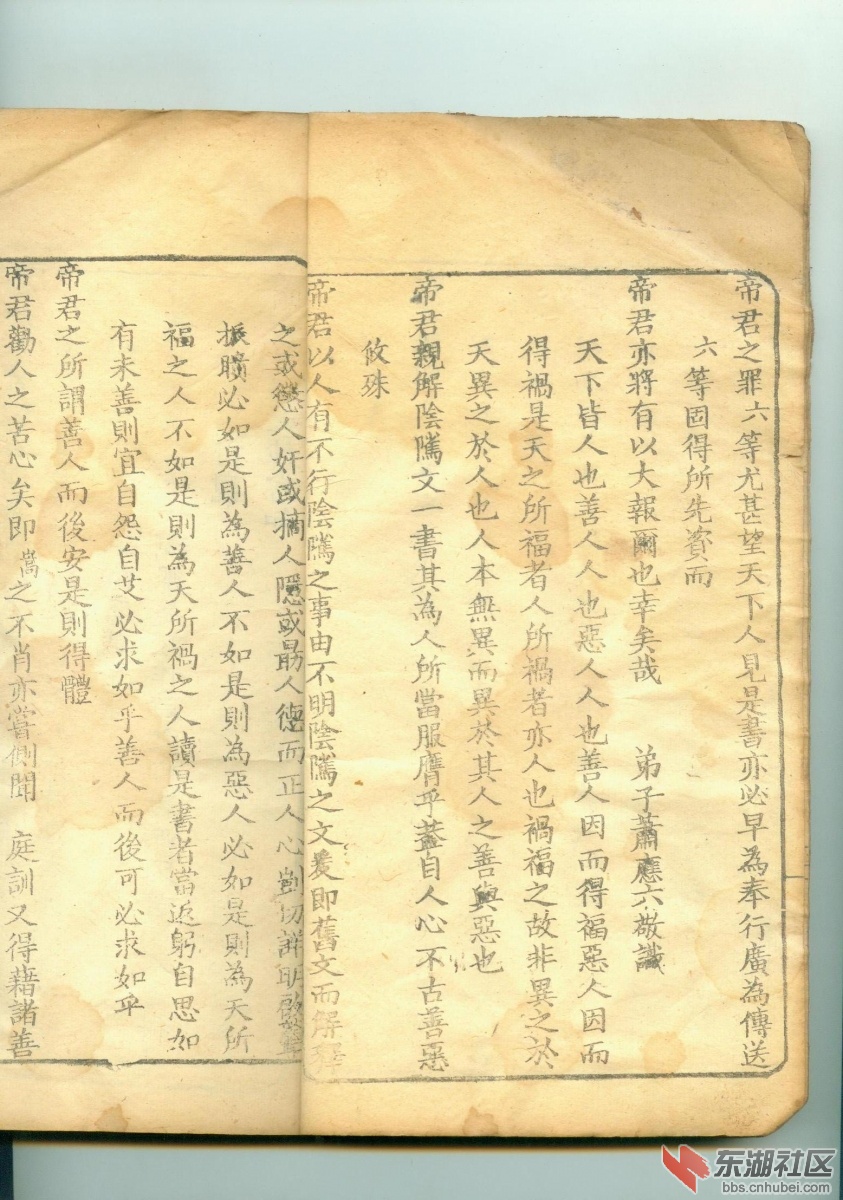 帝君之罪六等尤甚望天下人見是書亦必早為奉行廣為傳送
六等固得所先資而
帝君亦將有以大報爾也幸矣哉 弟子蕭應六敬識
天下皆人也善人人也惡人人也善人因而得福惡人因而
得禍是天之所福者人所禍者亦人也禍福之故非異之於
天異之於人也人本無異而異於其人之善與惡也
帝君親解陰隲文一書其為人所當服膺乎蓋自人心不古善惡
攸殊
帝君以人有不行陰隲之事由不明陰隲之文爰即舊文而解釋
之或慫人奸或摘人隱或勗人德而正人心剴切詳明啟聾
振聵必如是則為善人不如是則為惡人必如是則為天所
福之人不如是則為天所禍之人讀是書者當返躬自思如
有未善則宜自怨自艾必求如乎善人而後可必求如乎
帝君之所謂善人而後安是則得體
帝君勸人之苦心矣即嵩之不肖亦當側聞 庭訓又得藉諸善
东湖社区
bbs.cnhubei.com